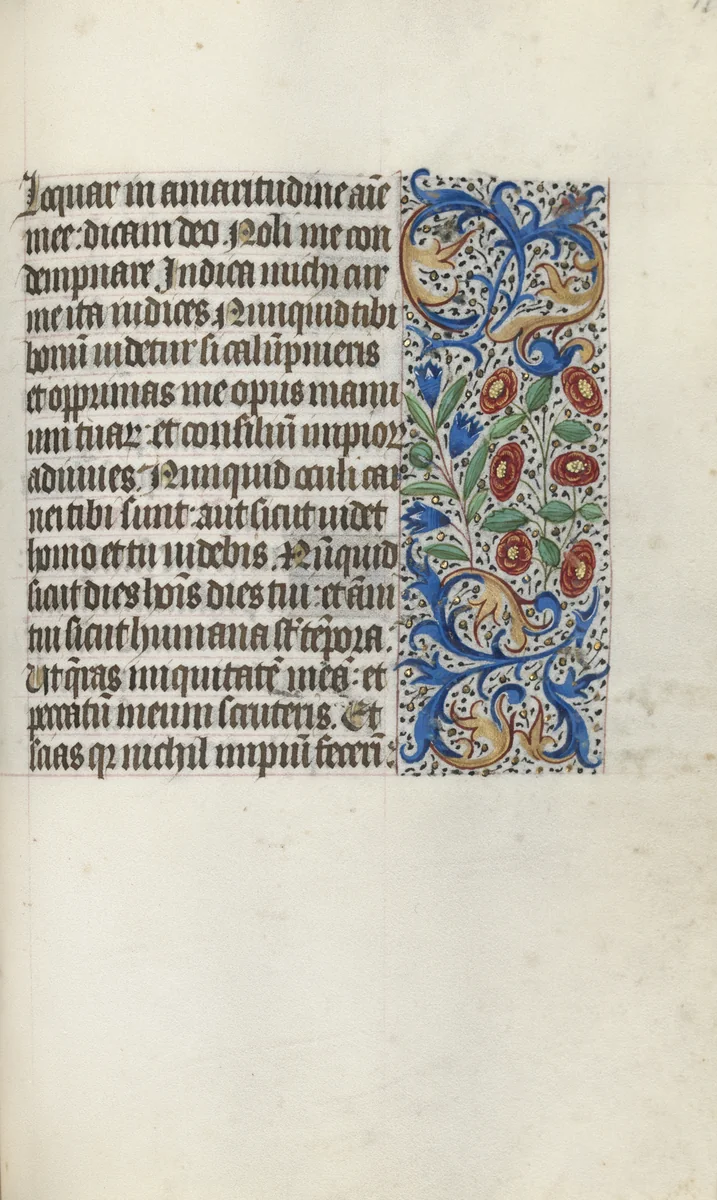 loquar in amaritudine aīe
mee: dicam deo. Noli me con
dempnare. Indica michi cur
me ita iudices. Nunquid tibi
bonū uidetur si calūpnieris
et opprimas me opus manu
um tuaꝝ: et consiliū impioꝝ
adiuues. Nunquid oculi car
nei tibi sunt: aut sicut uidet
homo et tu uidebis. Nūquid
sicut dies hoīs dies tui: et ām
tui sicut humana st̄ tēpora.
Ut q̄ras iniquitatē meā: et
peccatū meum scruteris. Et
scias qꝛ nichil impiū fecerī: